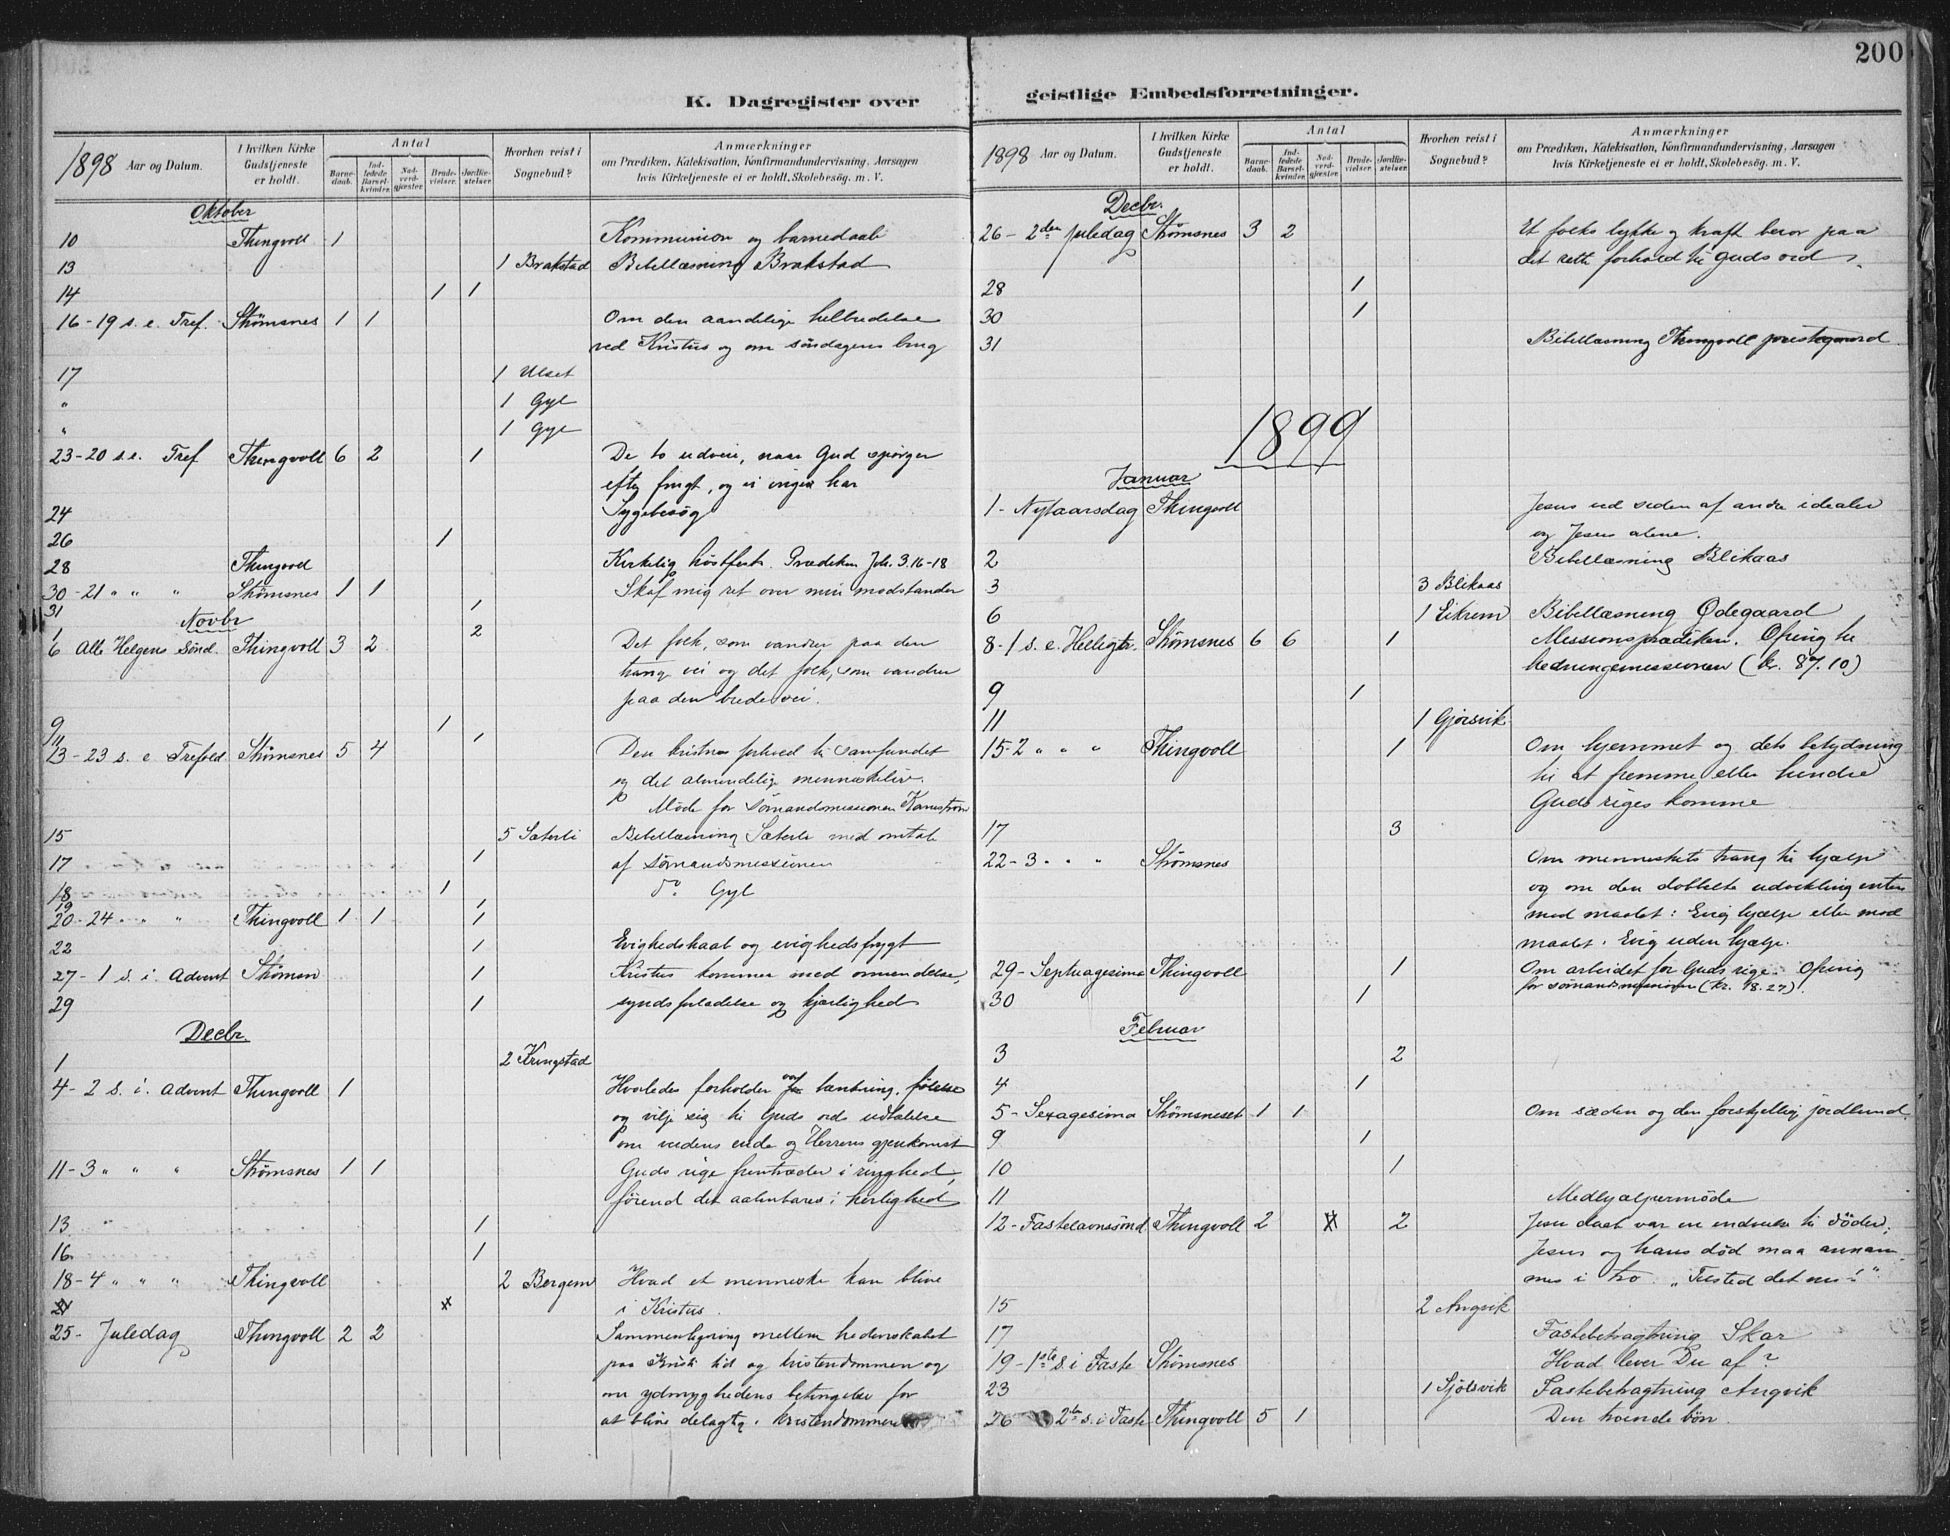 200
K. Dagregister over geistlige Embedsforretninger.
1898 Aar og Datum. I hvilken Kirke Gudstjeneste er holdt. Antal Barnedaab. Indledede Barselkvinder. Nadverdgjæster. Brudevielser. Jordfæstelser Hvorhen reist i Sognebud? Anmærkninger om Prædiken, Katekisation, Konfirmandundervisning, Aarsagen hvis Kirketjeneste ei er holdt, Skolebesøg. m. V.
Oktober
10 Thingvoll 1 Kommunion og barnedaab
13 1 Brakstad Bibellæsning Brakstad
14 1 1
16-19 s. e. Tref. Strömsnes 1 1 Om den aandelige helbredelse
ved Kristus og om söndagens brug
17 1 Ulset
" 1 Gyl
" 1 Gyl
23-20 s.e. Tref Thingvoll 6 2 1 De to udveie, naar Gud spörger
efter frugt, og vi ingen har
24 Sygebesög
26 1
28 Thingvoll Kirkelig höstfest. Prædiken Joh. 3.16-18
30-21 " " " Strömsnes 1 1 Skaf mig ret over min modstander
31 1
Novbr
1 2
6 Alle Helgens Sönd. Thingvoll 3 2 Det folk, som vandrer paa den
trange vei og det folk, som vandrer
paa den brede vei.
9 1
11 1
13-23 s. e. Trefold. Strömsnes 5 4 Den kristnes forhold til samfundet
og det almindelige menneskeliv.
Möde for sömandsmissionen
15 5 Sæterli Bibellæsning Sæterli med omtale
17 1 af sömandsmissionen
18 1 do Gyl
19 1
20-24 " " " Thingvoll 1 1 1
22 1 Evighedshaab og evighedsfrygt
27-1 s. i. Advent Strömsn 1 Kristus kommer med omvendelse,
29 1 syndsforladelse og kjærlighed
Decbr.
1 2 Kringstad
4-2 s. i. Advent Thingvoll 1 Hvorledes forholder vor tænkning, følelse
og vilje sig til Guds ords udtalelse
om verdens ende og Herrens gjenkomst
11-3 " " " Strömsnes 1 1 Guds rige fremtræder i ringhed,
førend det aabenbares i herlighed
13 " 1
16 1
18-4 " " " Thingvoll 2 Bergem Hvad et menneske kan blive
i Kristus.
25- Juledag Thingvoll 2 2 Sammenligning mellem hedenskabet
paa Kristi tid og kristendommen og
om ydmyghedens betingelse for
at blive delagtig i kristendommen
1898 Aar og Datum. I hvilken Kirke Gudstjeneste er holdt. Antal Barnedaab. Indledede Barselkvinder. Nadverdgjæster. Brudevielser. Jordfæstelser Hvorhen reist i Sognebud? Anmærkninger om Prædiken, Katekisation, Konfirmandundervisning, Aarsagen hvis Kirketjeneste ei er holdt, Skolebesøg. m. V.
Decbr.
26- 2den Juledag Strömsnes 3 2 Et folks lykke og kraft beror paa
det rette forhold til Guds ord.
28 1
30 1
31 Bibellæsning Thingvoll prestegaard
1899
Januar
1- Nytaarsdag Thingvoll Jesus ved siden af andre idealer
og Jesus alene.
2 Bibellæsning Blikaas
3 3 Blikaas
6 1 Eikrem Bibellæsning Ødegaard
8-1 s. e. Helligtr. Strömsnes 6 6 1 Missionsprædiken. Ofring til
hedningemissionen (kr. 87.10)
9 1
11 1 Gjørsvik
15-2 " " " Thingvoll 1 Om hjemmet og dets betydning
til at fremme eller hindre
Guds riges komme
17 3
22-3 " " " Strömsnes Om menneskets trang til hjælp
og om den dobbelte udvikling enten
mod maalet: Evig hjælp eller mod
maalet: Evig uden hjælp.
29- Septuagesima Thingvoll 1 Om arbeidet for Guds rige. Ofring
30 1 for sømandsmissionen (kr. 18.27).
Februar
3 2
4 1
5- Sexagesima Strömsneset 1 1 Om sæden og den forskjellige jordbund.
9 1
10 1
11 Medhjælpermöde
12- Fastelavnssönd. Thingvoll 2 2 Jesu daab var en indvielse til döden;
Jesus og hans död maa annam-
mes i tro. "Tilsted det nu!"
15 2 Angvik
17 Fastebetragtning Skar
19-1ste s. i Faste Strömsnes Hvad lever Du af?
23 1 Sjölsvik Fastebetragtning Angvik
26 2den s. i Faste Thingvoll 5 1 Den troende bön.